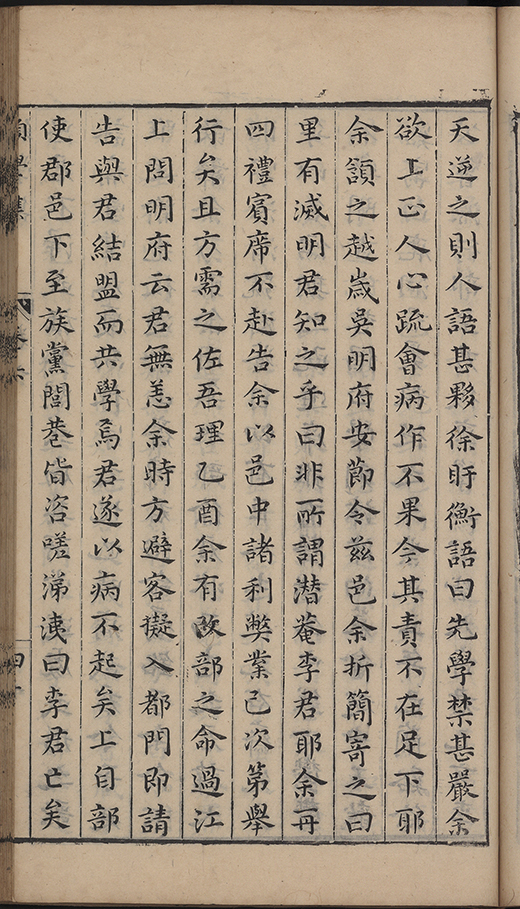 天逆之則人語甚夥徐盱衡語曰先學禁甚嚴余
欲上正人心疏會病作不果今其責不在足下耶
余頷之越歲吳明府安節令茲邑余折簡寄之曰
里有滅明君知之乎曰非所謂潛菴李君耶余再
四禮賓席不赴告余以邑中諸利獘業已次第舉
行矣且方需之佐吾理乙酉余有改部之命過江
上問明府云君無恙余時方避客擬入都門即請
告與君結盟而共學焉君遂以病不起矣上自部
使郡邑下至族黨閭巷皆咨嗟涕洟曰李君亡矣
學集
卷六
四十